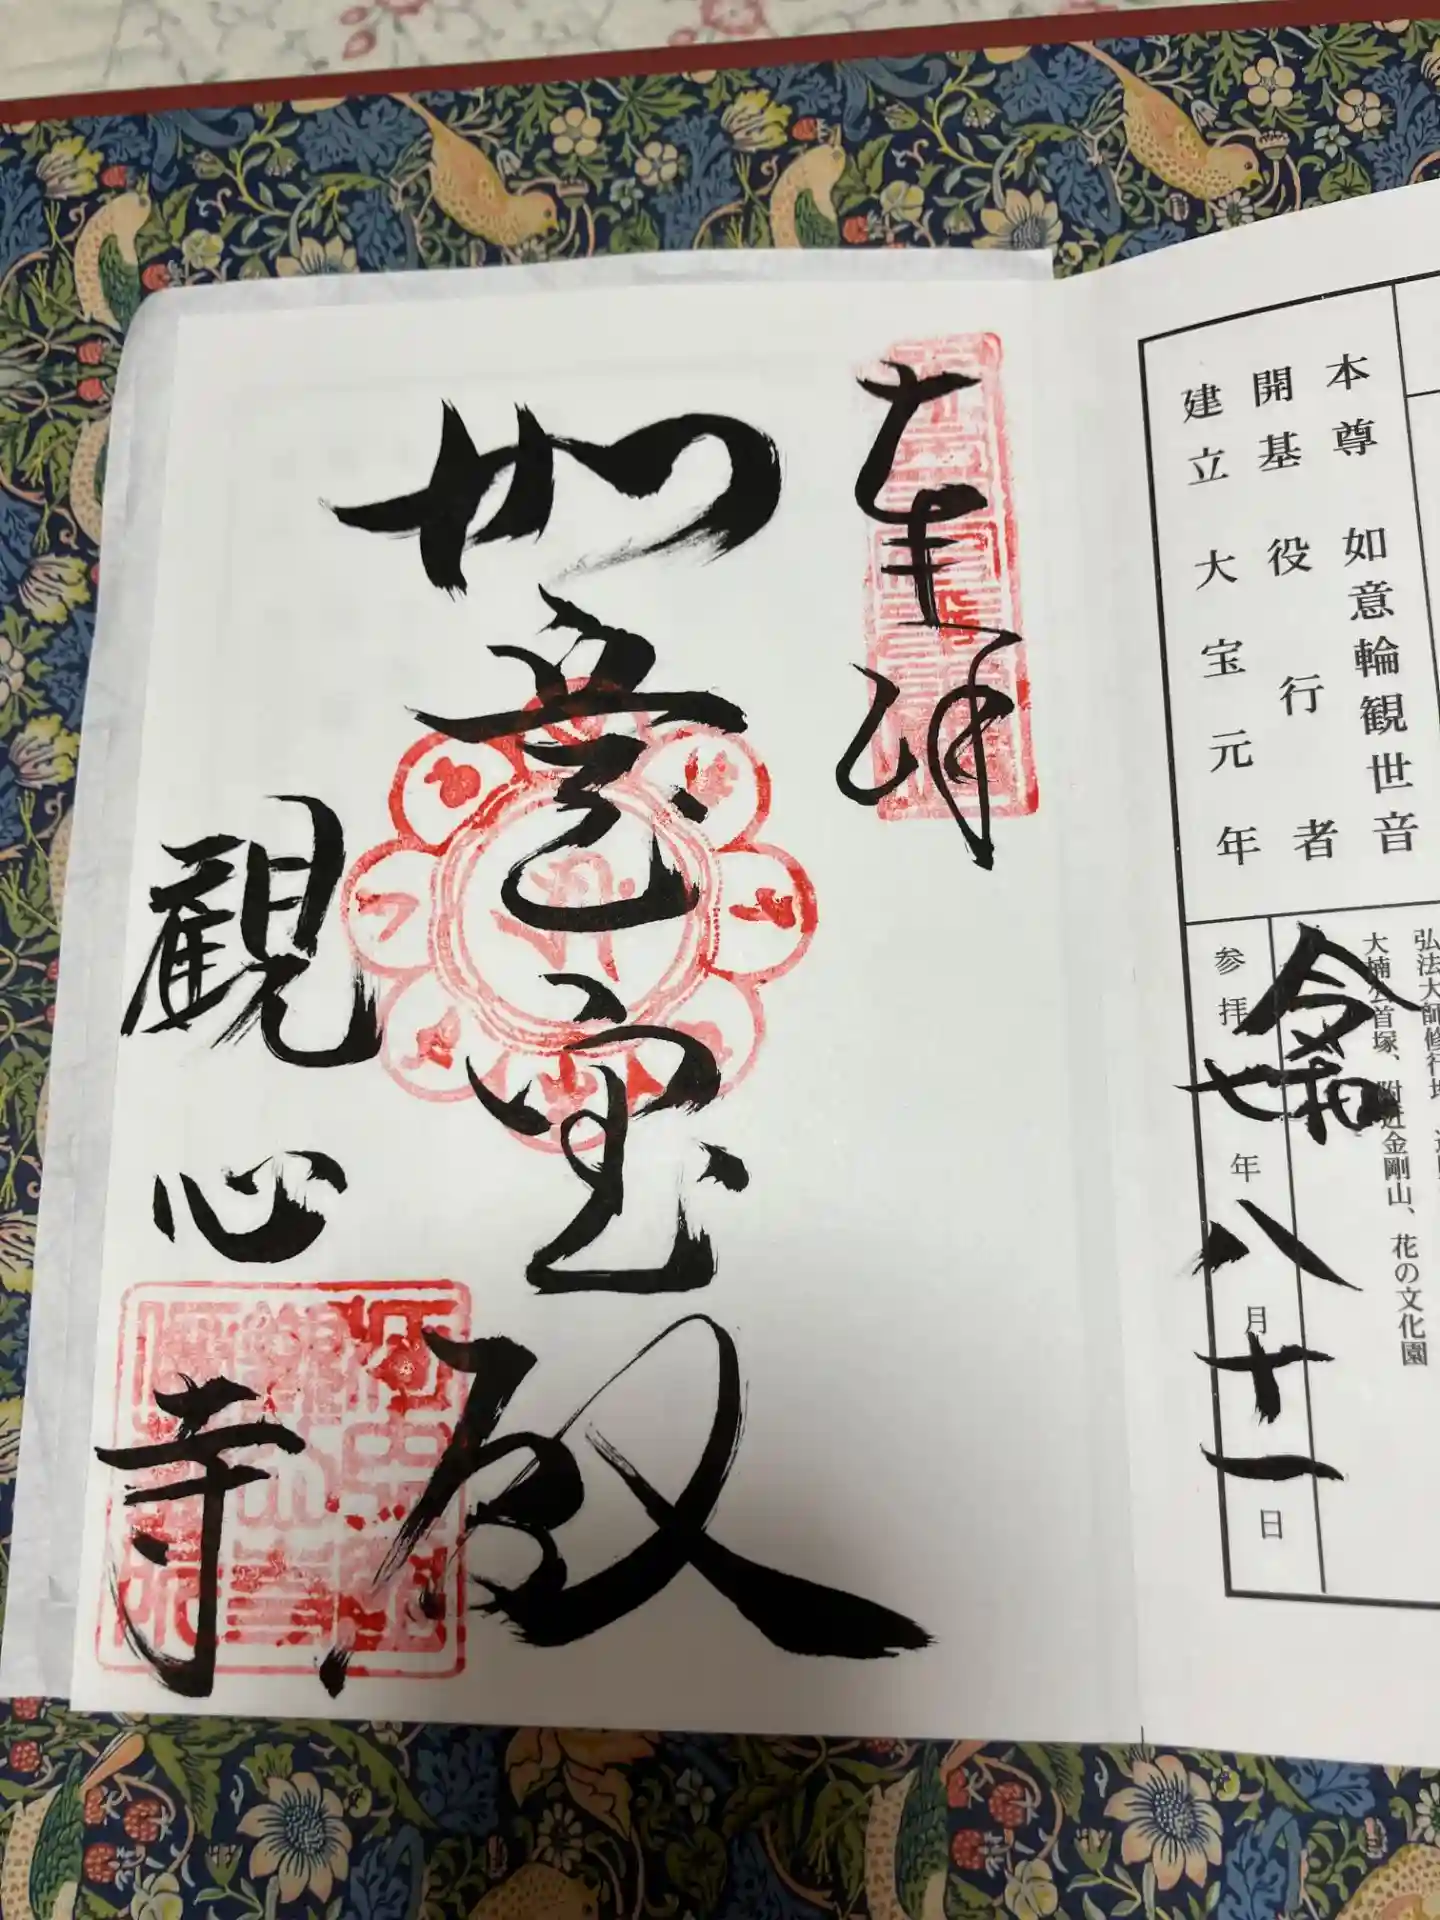 弘法大師修行
大楠公首塚、附近金剛山、花の文化園
本尊 如意輪観世音
開基 役行者
建立 大宝元年
令和
参拝七年八月十一日
奉拝
如意宝殿
観心寺